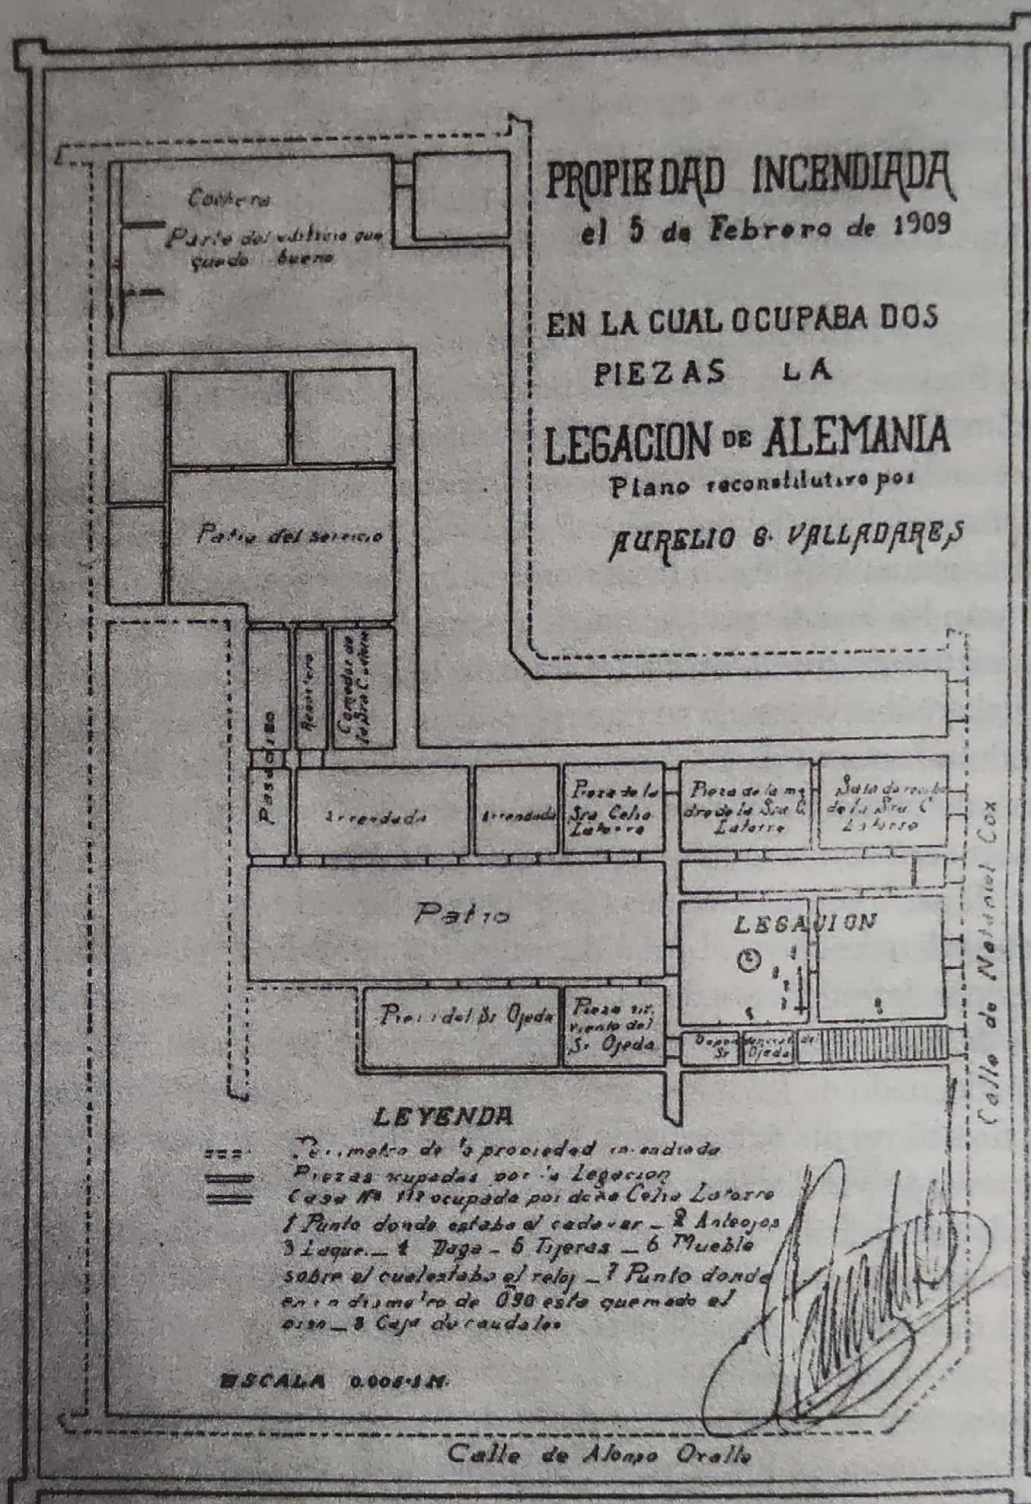 PROPIEDAD INCENDIADA
el 5 de Febrero de 1909
EN LA CUAL OCUPABA DOS
PIEZAS LA
LEGACION DE ALEMANIA
Plano reconstitutivo por
AURELIO G. VALLADARES
Parte del edificio que
quedo bueno
Patio del servicio
Pasadizo
Repostero
Comedor de
la Sra C. Latorre
Arrendada
Arrendada
Pieza de la
Sra Celia
Latorre
Pieza de la ma
dre de la Sra C.
Latorre
Sala de recibo
de la Sra C
Latorre
Patio
LEGACION
Pieza del Sr Ojeda
Pieza sir
viente del
Sr Ojeda
Sr Ojeda
Calle de Nataniel Cox
LEYENDA
Perimetro de la propiedad incendiada
Piezas ocupadas por la Legacion
Casa Nº 112 ocupada por doña Celia Latorre
1 Punto donde estaba el cadaver _ 2 Anteojos
3 Laque _ 4 Daga _ 5 Tijeras _ 6 Mueble
sobre el cual estaba el reloj _ 7 Punto donde
en un diametro de 0.90 esta quemado el
piso _ 8 Caja de caudales
ESCALA 0.005.1M.
Calle de Alonso Ovalle